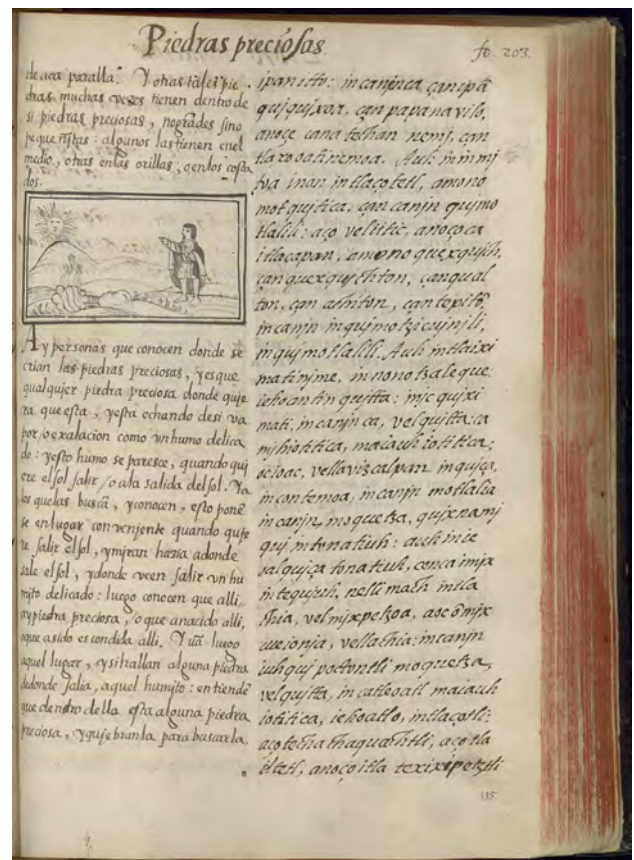 Piedras preciosas
fo. 203.
de aca paralla. Y otras tales pie
dras muchas vezes tienen dentro de
si piedras preciosas, no grãdes sino
pequeñitas: algunos las tienen en el
medio, otras en las orillas, o en los costa
dos.
Ay personas que conocen donde se
crian las piedras preciosas, y es que
qualqujer piedra preciosa donde quje
ra que esta, y esta echando de si va
por/o exalacion como vn humo delica
do: y esto humo se paresce, quando quj
ere el sol salir/o ala salida del sol. Ya
los quelas buscã, y conocen, esto ponẽ
se en lugar convenjente quando quje
re salir el sol, y mjran hazia adonde
sale el sol, y donde veen salir vn hu
mjto delicado: luego conocen que alli,
ay piedra preciosa, /o que a nacido alli,
o que a sido escondida alli. Y vã luego
aquel lugar, y si hallan alguna piedra
de donde salia, aquel humjto: entiendẽ
que dentro della esta alguna piedra
preciosa, y quje branla para buscarla.
ipan itto: in canjnca çan ipã
qujqujxoa, çan papanavilo,
anoce cana tetlan nemj, çan
tlaxoxotinemoa. Auh in in mj
toa inan in tlaçotetl, amono
motqujtica, çan canjn qujmo
tlalili: aço vel iitic, anoço ca
itlacapan, amono quexqujch,
çan quexqujchton, çan qual
ton, çan achiton, çan tepitõ,
in canjn in qujmotzicujnjli,
in qujmotlalili. Auh in tlaixi
matinjme, in nonotzaleque:
iehoantin qujtta: injc qujxi
mati, in canjn ca, vel qujtta: ca
mjhiotitica, maiauhiotitica:
ocioac, vellavizcalpan in qujça,
in contemoa, in canjn motlalia
in canjn, moquetza, qujxnamj
quj in tonatiuh: auh in ie
oalqujça tonatiuh, cenca imjx
intequjuh, nelli mach in tla
chia, vel mjxpetzoa, aoc õmjx
cueionja, vellachia: in canjn
iuhquj poctontli moquetza,
vel qujtta, in catleoatl maiauh
iotitica, iehoatl o, in tlaçotli:
aço techachaquachtli, aço tla
iltetl, anoço itla texixipetztli
335